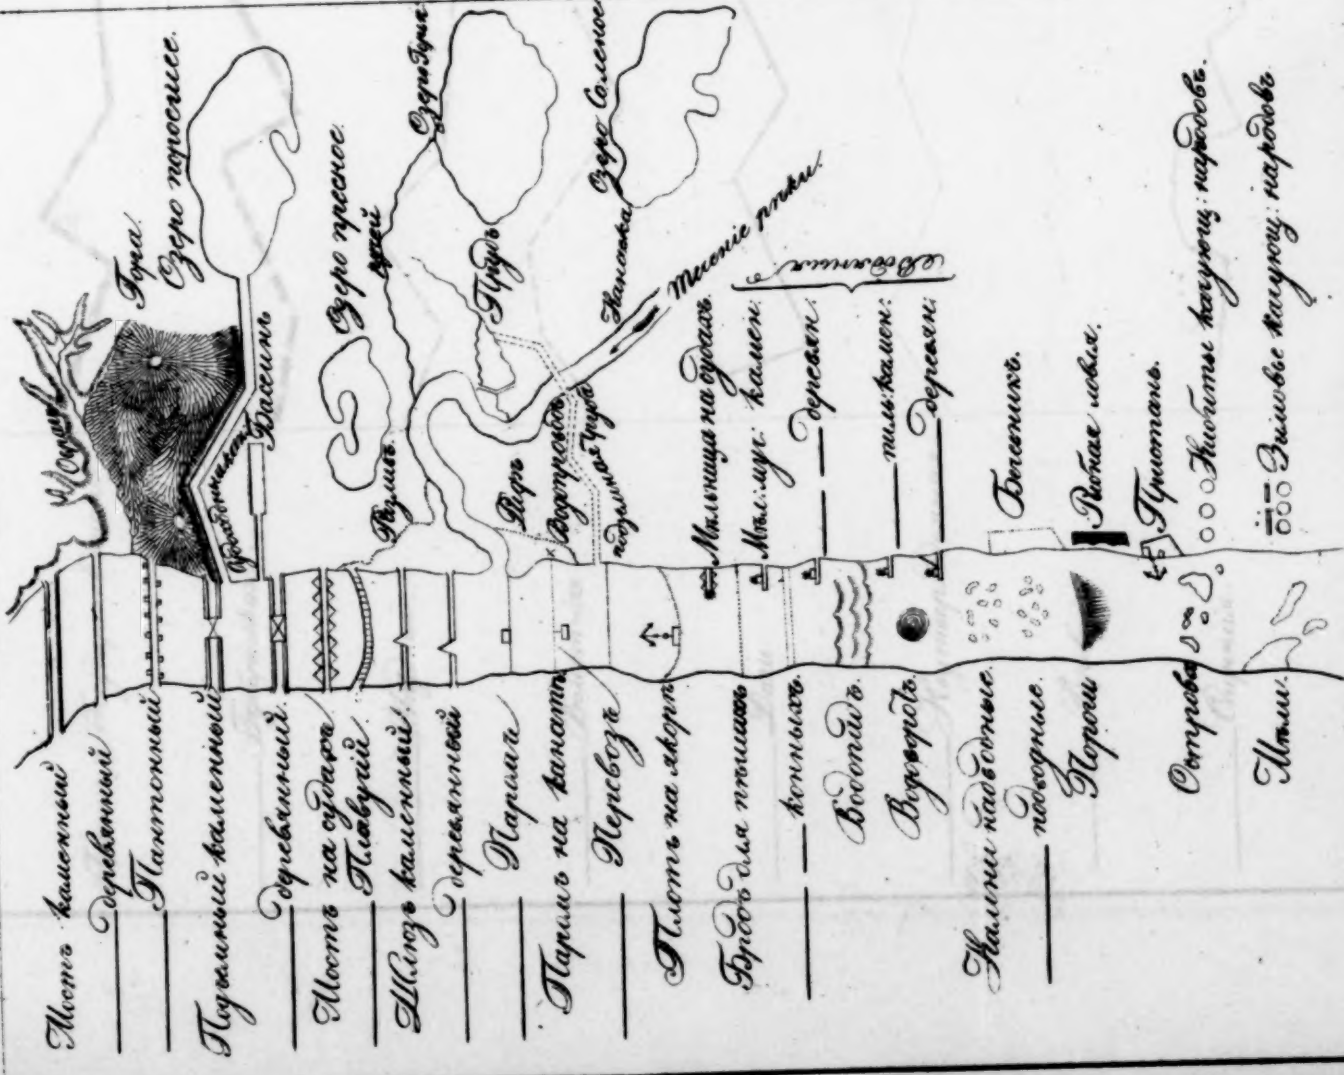 Мостъ каменный
——— деревянный
——— Пантонный
Подъемный каменный
——— деревянный.
Мостъ на судахъ
——— Плавучій
Шлюзъ каменный
——— деревянный
——— Паромъ
Паромъ на канатѣ
——— Перевозъ
Плотъ на якорѣ
Бродъ для пѣшихъ
——— конныхъ.
Водопадъ.
Камни надводные.
——— подводные.
Пороги
Острова
Мѣли.
Оврагъ
Гора.
Озеро поросшее.
Бассинъ
Озеро пресное
Ручей
Озеро Горьк:
Озеро Соленое
Прудъ
Канавка
Теченіе рѣки.
Водопроводъ
подземная труба
Мѣльница на судахъ.
Мѣл: муч: камен:
——— деревян:
——— пиль: камен:
——— деревян:
Водяныя
Бичевникъ.
Рыбная ловля.
Пристань.
Кибитки качующ: народовъ.
Зимовье качующ: народовъ